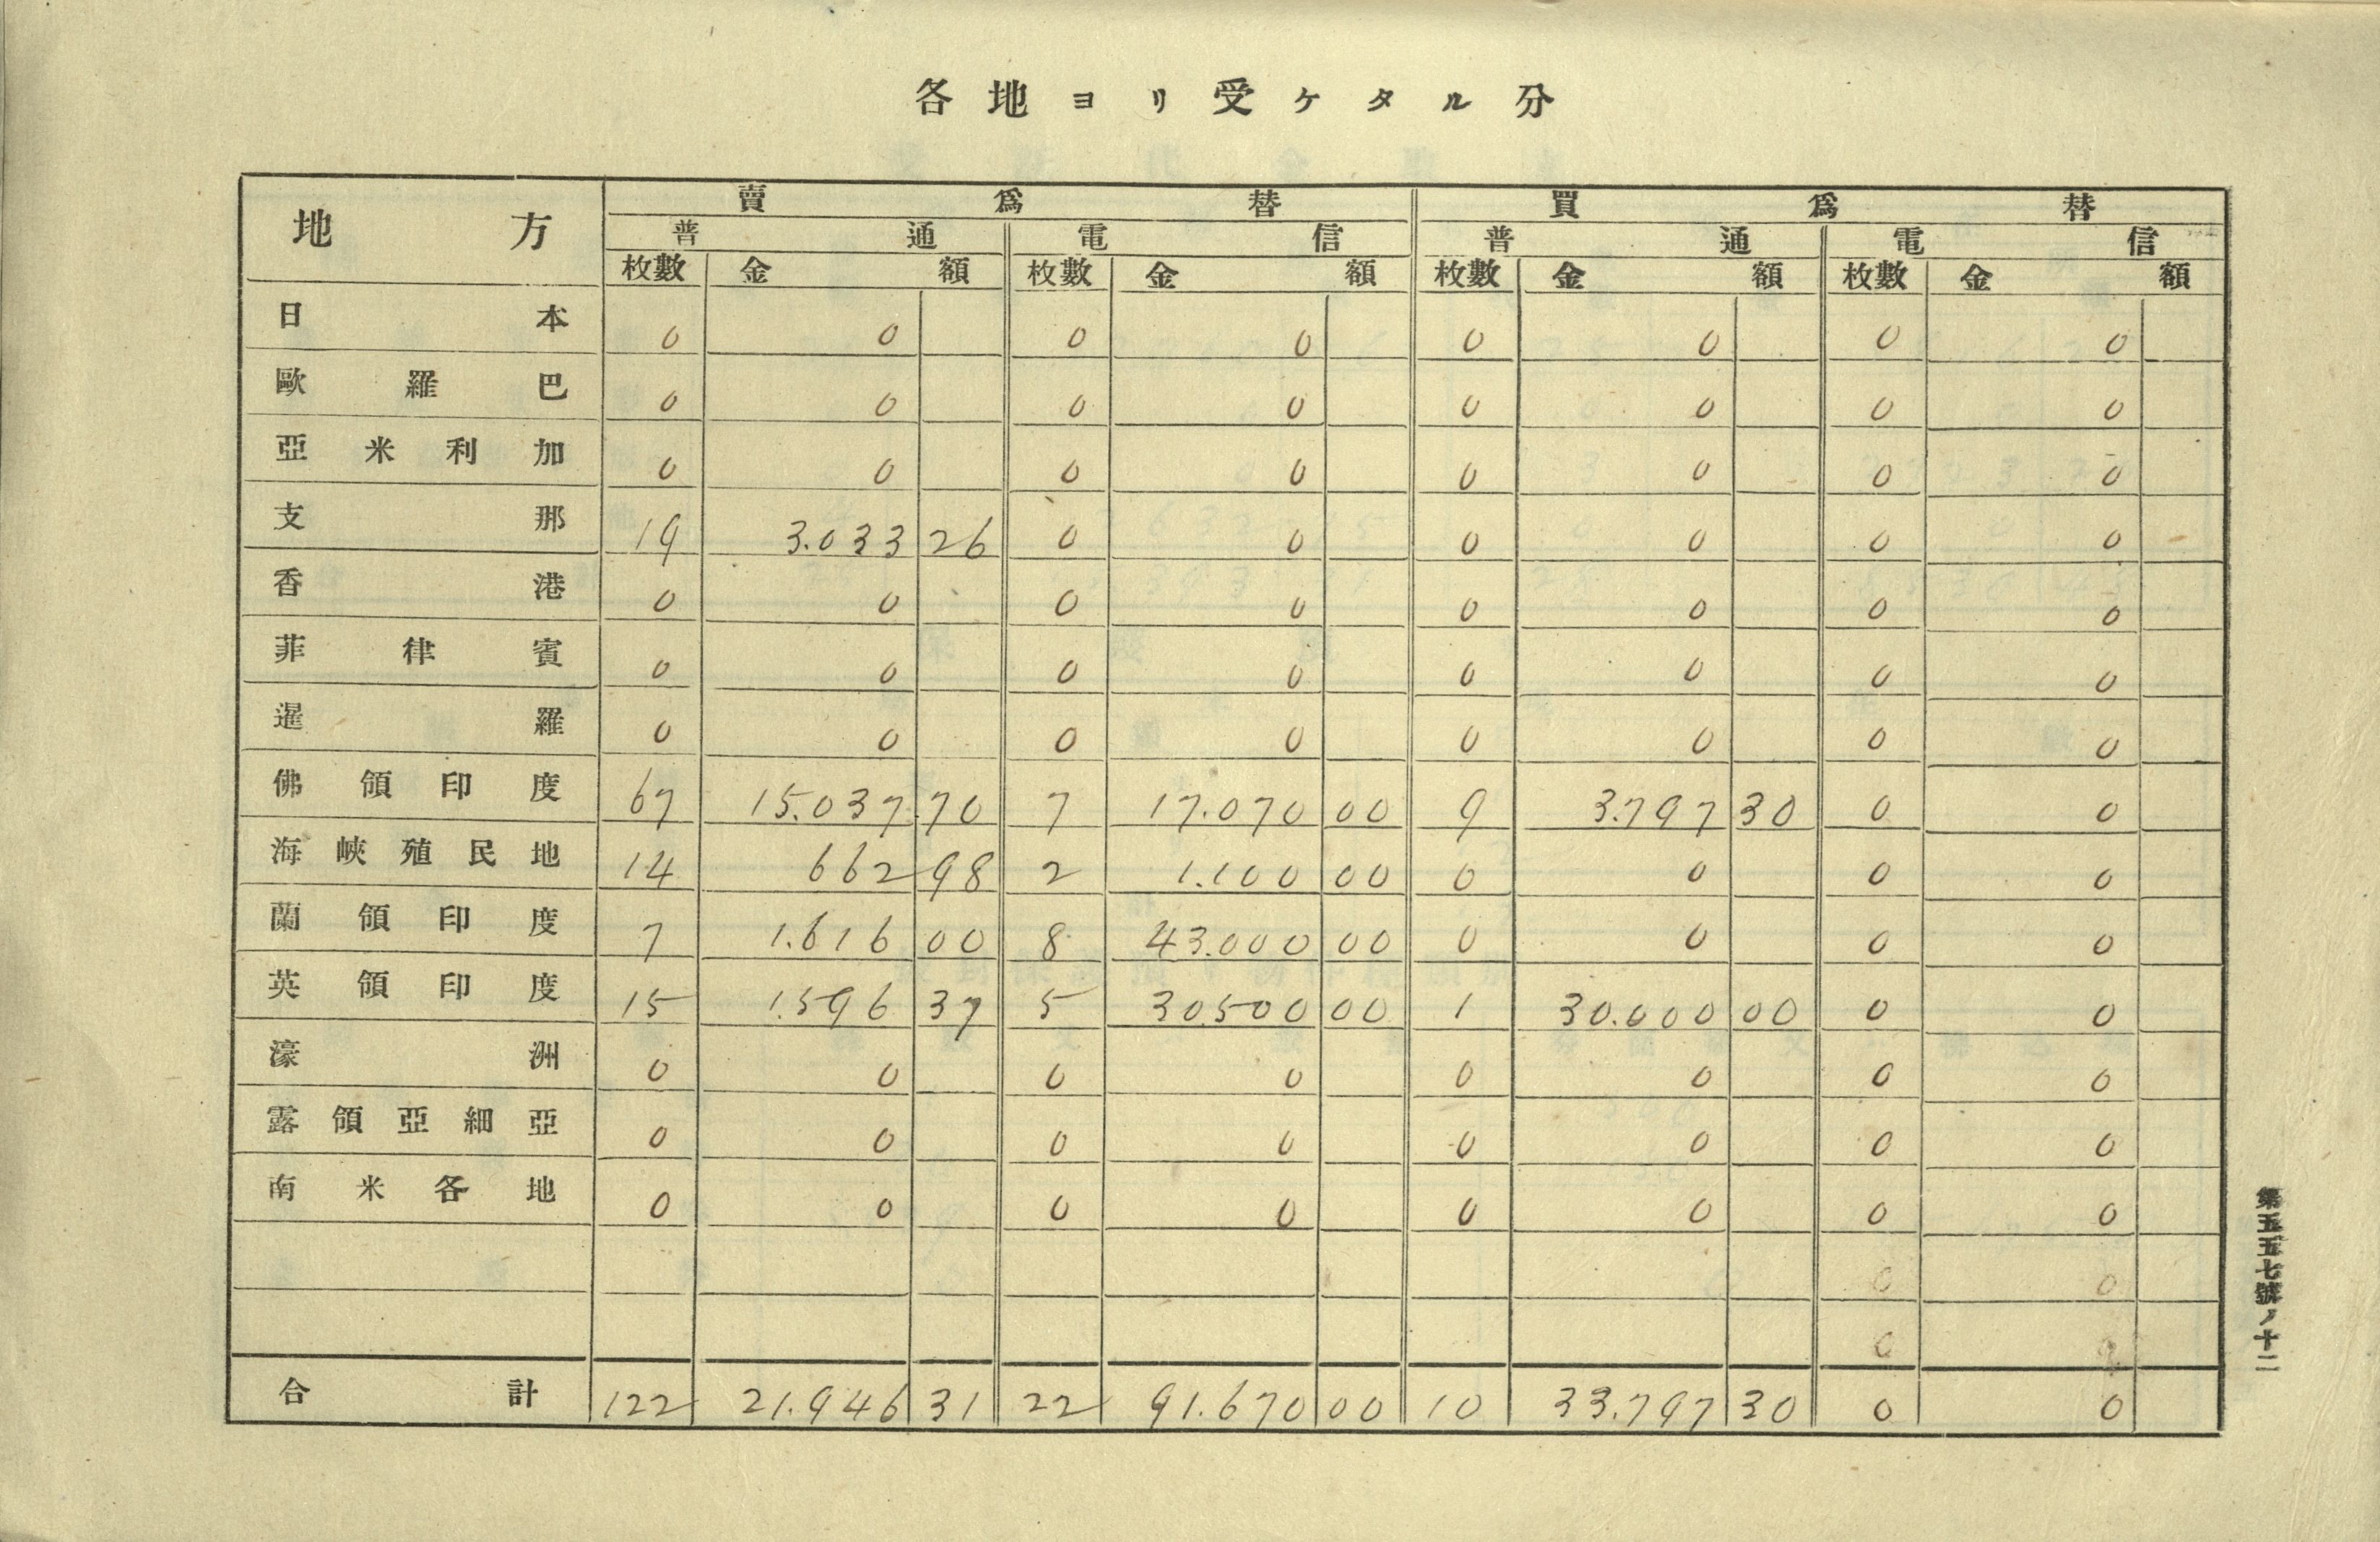 各地ヨリ受ケタル分
地方 賣爲替 買爲替
普通 電信 普通 電信
枚數 金額 枚數 金額 枚數 金額 枚數 金額
日本 0 0 0 0 0 0 0 0
歐羅巴 0 0 0 0 0 0 0 0
亞米利加 0 0 0 0 0 0 0 0
支那 19 3.033 26 0 0 0 0 0 0
香港 0 0 0 0 0 0 0 0
菲律賓 0 0 0 0 0 0 0 0
暹羅 0 0 0 0 0 0 0 0
佛領印度 67 15.037 70 7 17.070 00 9 3.797 30 0 0
海峽殖民地 14 662 98 2 1.100 00 0 0 0 0
蘭領印度 7 1.616 00 8 43.000 00 0 0 0 0
英領印度 15 1.596 37 5 30.500 00 1 30.000 00 0 0
濠洲 0 0 0 0 0 0 0 0
露領亞細亞 0 0 0 0 0 0 0 0
南米各地 0 0 0 0 0 0 0 0
0 0
0 0
合計 122 21.946 31 22 91.670 00 10 33.797 30 0 0
第五五七號ノ十二